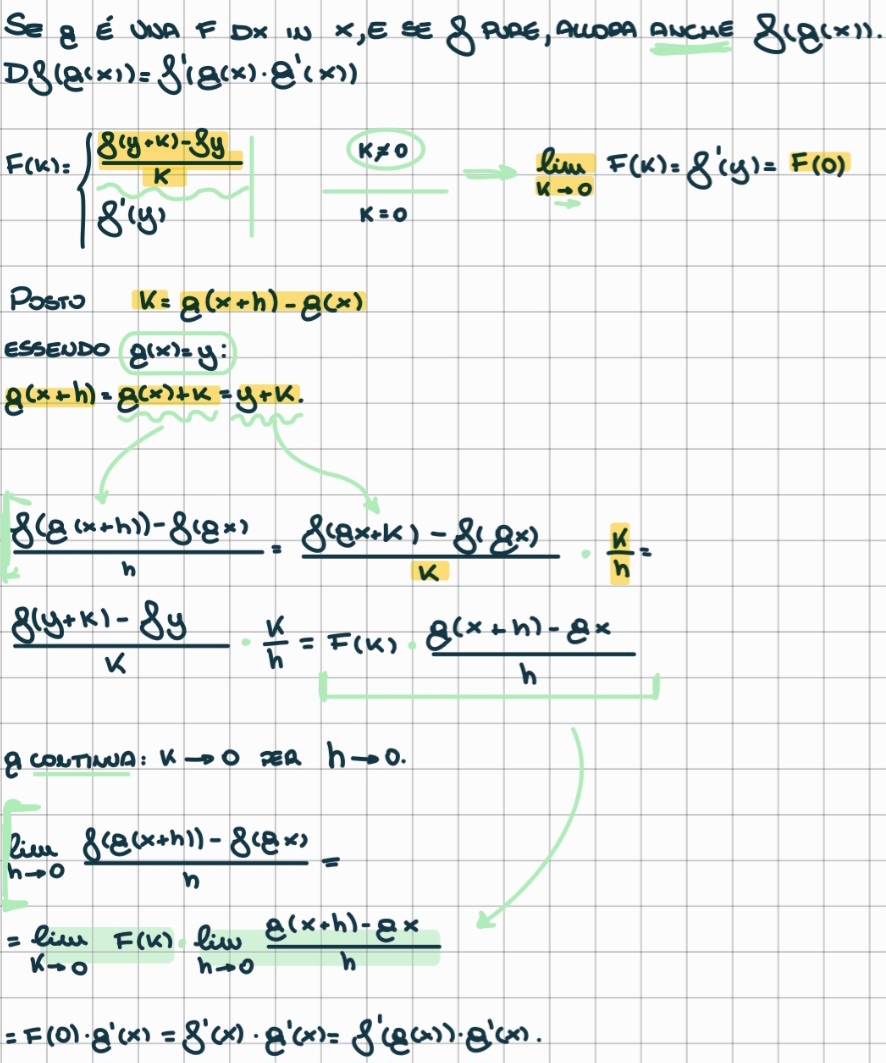 SE g É UNA F DX IN X, E SE f PURE, ALLORA ANCHE f(g(x)).
Df(g(x)) = f'(g(x) · g'(x))
F(K): { f(y+K) - fy / K K≠0 → lim K→0 F(K) = f'(y) = F(0)
f'(y) K = 0
POSTO K = g(x+h) - g(x)
ESSENDO g(x) = y:
g(x+h) = g(x)+K = y+K.
f(g(x+h)) - f(gx) / h = f(gx+K) - f(gx) / K · K/h =
f(y+K) - fy / K · K/h = F(K) · g(x+h) - gx / h
g CONTINUA: K → 0 PER h → 0.
lim h→0 f(g(x+h)) - f(gx) / h =
= lim K→0 F(K) · lim h→0 g(x+h) - gx / h
= F(0) · g'(x) = f'(x) · g'(x) = f'(g(x)) · g'(x).